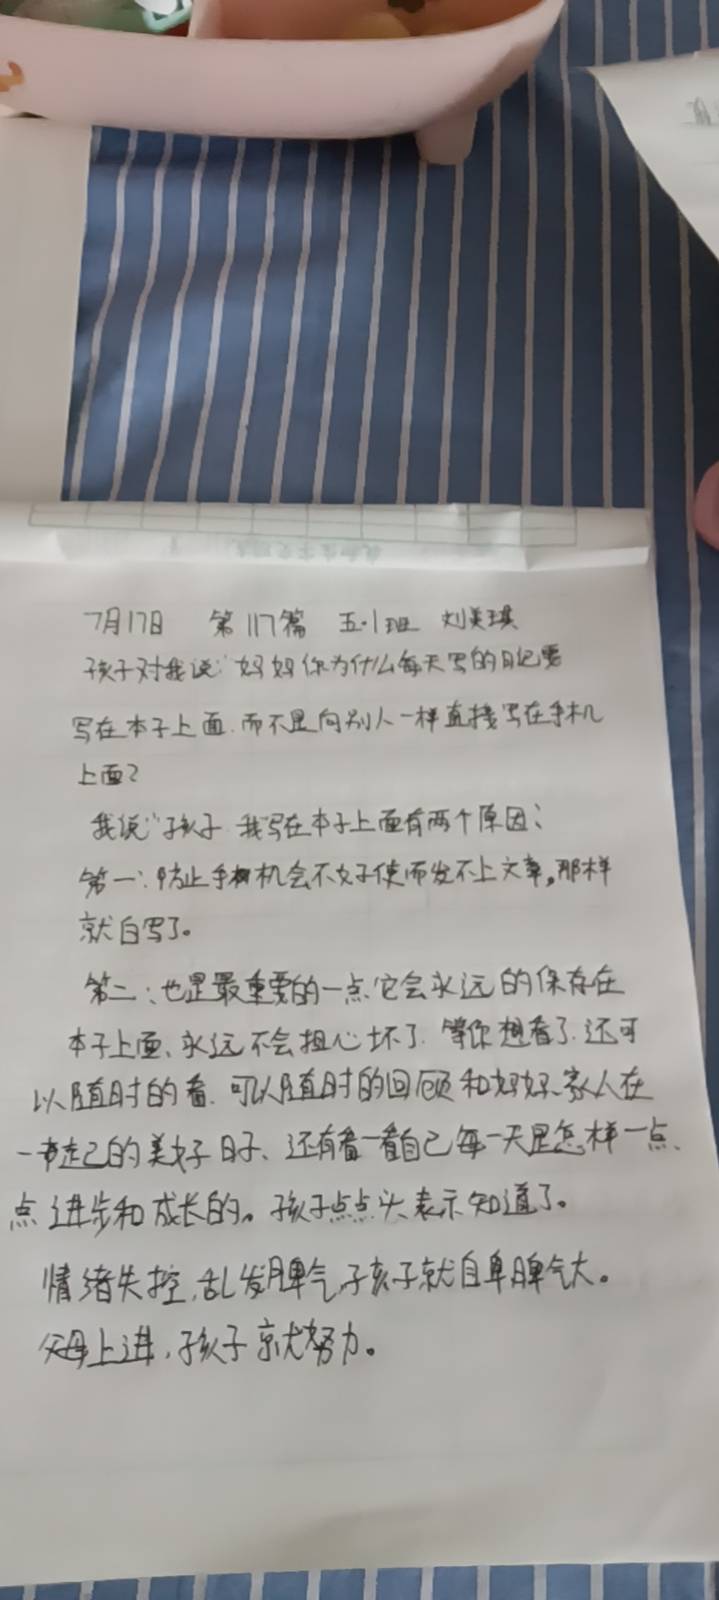 7月17日 第117篇 五·1班 刘美琪
孩子对我说:"妈妈你为什么每天写的日记要
写在本子上面.而不是向别人一样直接写在手机
上面?
我说:"孩子.我写在本子上面有两个原因:
第一:防止手机会不好使而发不上文章。那样
就白写了。
第二:也是最重要的一点.它会永远的保存在
本子上面、永远不会担心坏了.等你想看了.还可
以随时的看.可以随时的回顾和妈妈、家人在
一起的美好日子、还有看一看自己每一天是怎样一点、
点进步和成长的。孩子点点头表示知道了。
情绪失控,乱发脾气,孩子就自卑脾气大。
父母上进,孩子就努力。